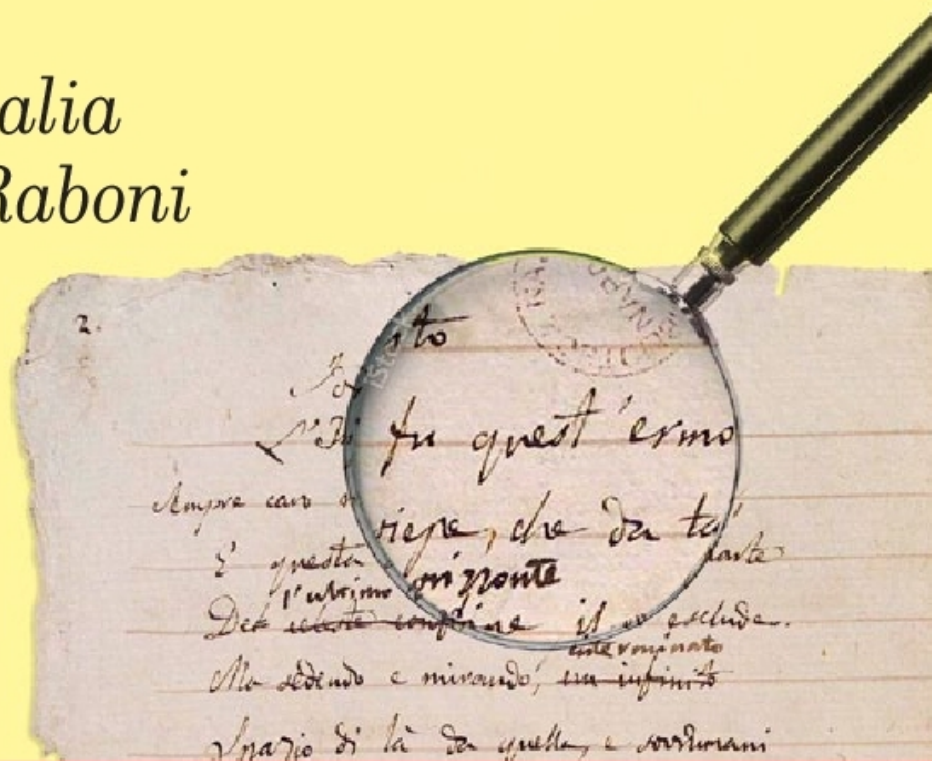 alia
Raboni
2.
sto
L'Idi
fu quest'ermo
Sempre caro
siepe, che da ta
E questa
parte
l'ultimo orizzonte
Del celeste confine il o esclude.
interminato
Ma sedendo e mirando, un infinito
Spazio di là da quella, e sovrumani